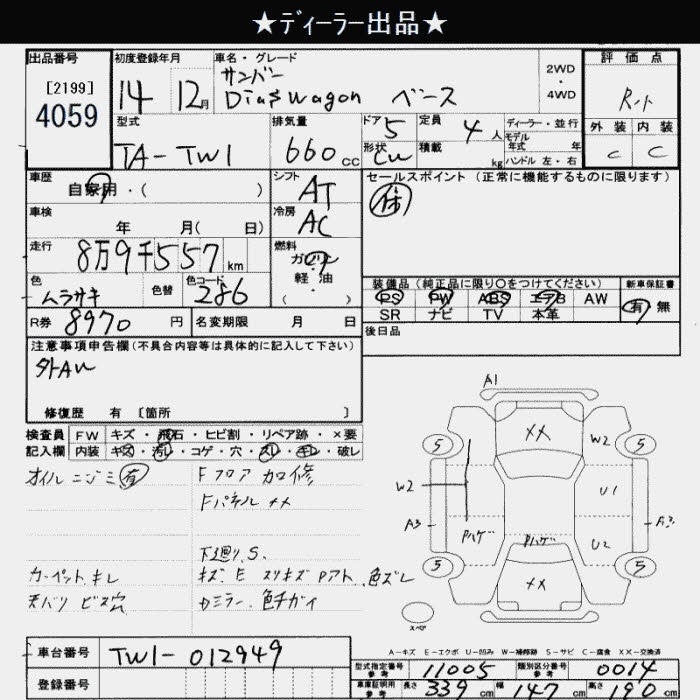 ★ディーラー出品★
出品番号
[2199]
4059
初度登録年月
14 12月
車名・グレード
サンバー
Dias Wagon ベース
2WD
・
4WD
評価点
R
外装 内装
C C
型式
TA-TW1
排気量
660 cc
ドア 5
形状
定員 4 人
積載 kg
ディーラー・並行
モデル
年式 年
ハンドル 左・右
車歴
自家用・( )
シフト
AT
セールスポイント (正常に機能するものに限ります)
車検
年 月( 日)
冷房
AC
走行
8万9千557 km
燃料
ガソリン
軽・油
( ・ )
色
ムラサキ
色替
色コード
286
装備品(純正品に限り○をつけてください)
PS PW ABS エアB AW
SR ナビ TV 本革
新車保証書
有 無
R券 8970 円
名変期限 月 日
後日品
注意事項申告欄(不具合内容等は具体的に記入して下さい)
外AW
修復歴 有 〔箇所 〕
検査員 FW キズ・飛石・ヒビ割・リペア跡・×要
記入欄 内装 キズ・汚レ・コゲ・穴・スレ・キレ・破レ
オイルニジミ 有
Fフロア 加修
Fパネル ××
下廻り.S.
カーペット キレ
キズ.E スリキズ Pアト.色ズレ
天バリ ビス穴
ミラー 色チガイ
A1
××
5 5
W2
W2
U1
A3
A3
Pハゲ
Pハゲ
U2
5 5
××
スペア
A-キズ E-エクボ U-凹み W-補修跡 S-サビ C-腐食 XX-交換済
車台番号 TW1-012949
登録番号
型式指定番号
参考
11005
類別区分番号
参考
0014
車庫証明用
参考
長さ 339 cm 幅 147 cm 高さ 190 cm